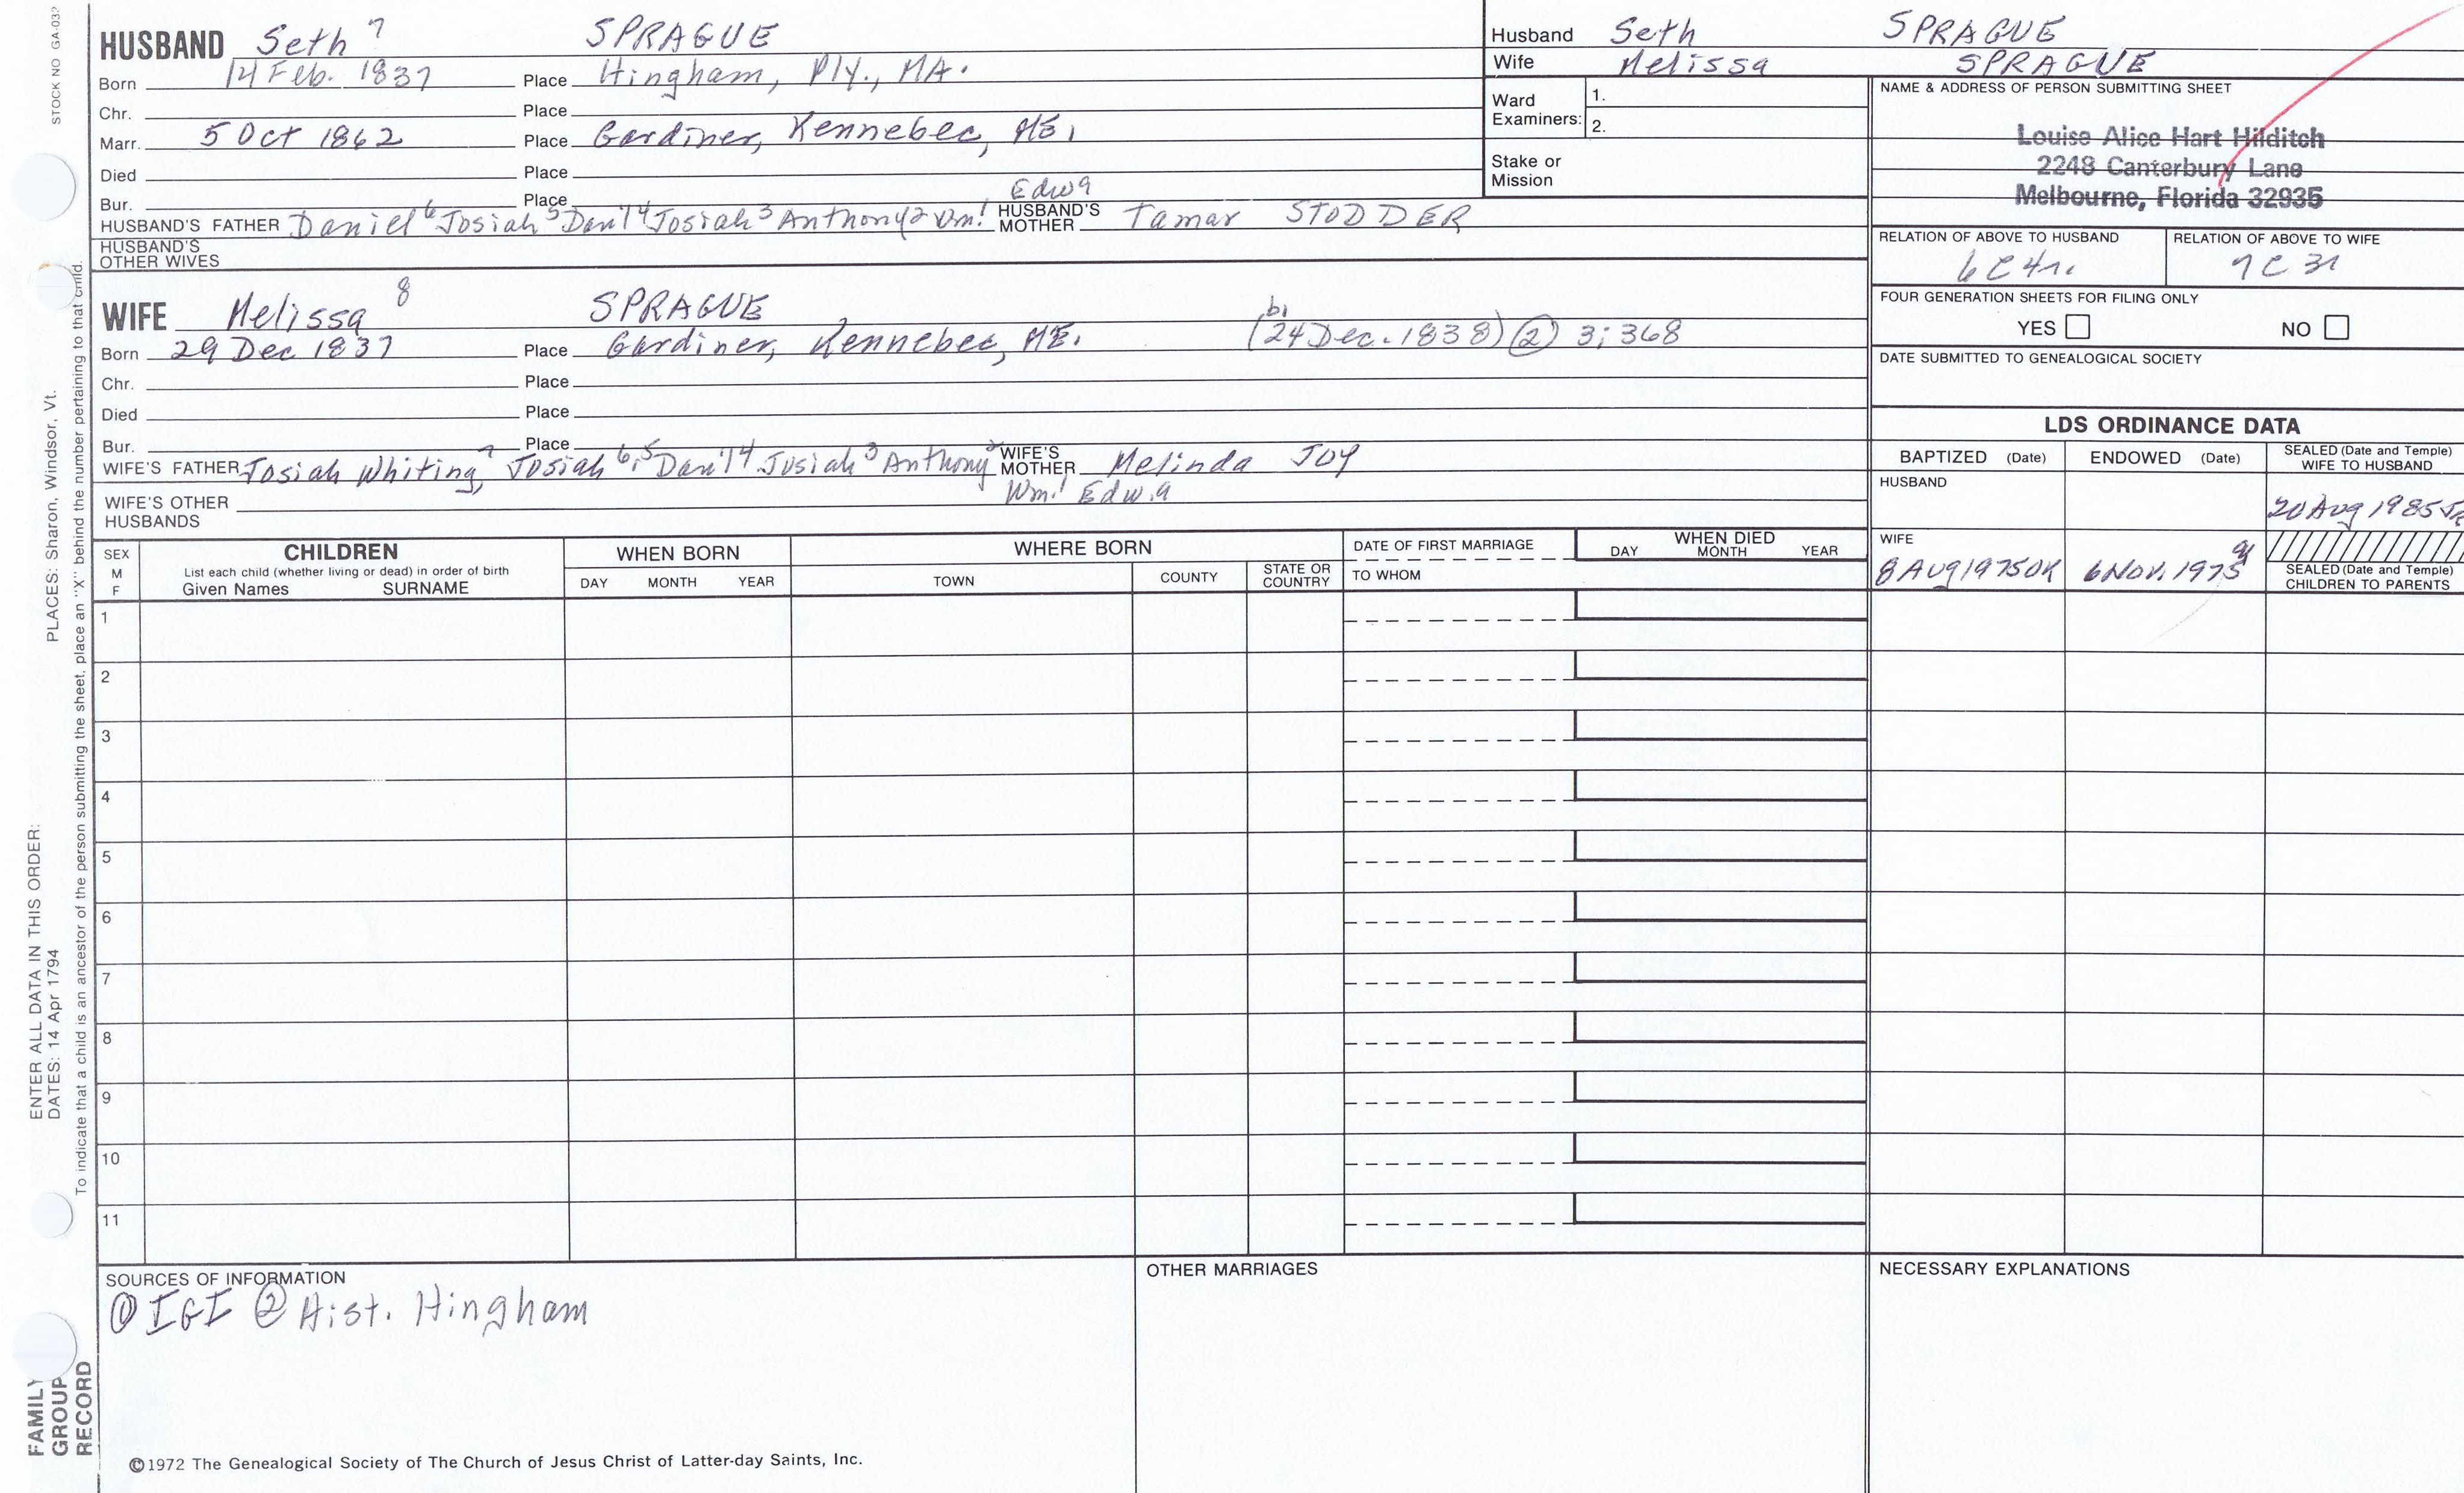 STOCK NO GA-032
HUSBAND Seth 7 SPRAGUE
Born 14 Feb. 1837 Place Hingham, Ply., MA.
Chr. Place
Marr. 5 Oct 1862 Place Gardiner, Kennebec, ME.
Died Place
Bur. Place
HUSBAND'S FATHER Daniel6 Josiah5 Dan'l4 Josiah3 Anthony2 Wm.1 Edwa HUSBAND'S MOTHER Tamar STODDER
HUSBAND'S OTHER WIVES
WIFE Melissa 8 SPRAGUE
Born 29 Dec 1837 Place Gardiner, Kennebec, ME. (b. 24 Dec. 1838) ② 3;368
Chr. Place
Died Place
Bur. Place
WIFE'S FATHER Josiah Whiting7, Josiah6,5 Dan'l4 Josiah3 Anthony2 Wm.1 Edw.a WIFE'S MOTHER Melinda JOY
WIFE'S OTHER HUSBANDS
Husband Seth SPRAGUE
Wife Melissa SPRAGUE
Ward Examiners: 1. 2.
Stake or Mission
NAME & ADDRESS OF PERSON SUBMITTING SHEET
Louise Alice Hart Hilditch
2248 Canterbury Lane
Melbourne, Florida 32935
RELATION OF ABOVE TO HUSBAND RELATION OF ABOVE TO WIFE
6C4r. 7C3r
FOUR GENERATION SHEETS FOR FILING ONLY
YES NO
DATE SUBMITTED TO GENEALOGICAL SOCIETY
LDS ORDINANCE DATA
BAPTIZED (Date) ENDOWED (Date) SEALED (Date and Temple) WIFE TO HUSBAND
HUSBAND
20 Aug 1985
WIFE
8 Aug 1975 OK 6 Nov. 1975
SEALED (Date and Temple) CHILDREN TO PARENTS
SEX M F
CHILDREN
List each child (whether living or dead) in order of birth
Given Names SURNAME
WHEN BORN
DAY MONTH YEAR
WHERE BORN
TOWN COUNTY STATE OR COUNTRY
DATE OF FIRST MARRIAGE
TO WHOM
WHEN DIED
DAY MONTH YEAR
1
2
3
4
5
6
7
8
9
10
11
SOURCES OF INFORMATION
① IGI ② Hist. Hingham
OTHER MARRIAGES
NECESSARY EXPLANATIONS
©1972 The Genealogical Society of The Church of Jesus Christ of Latter-day Saints, Inc.
FAMILY GROUP RECORD
ENTER ALL DATA IN THIS ORDER:
DATES: 14 Apr 1794
PLACES: Sharon, Windsor, Vt.
To indicate that a child is an ancestor of the person submitting the sheet, place an "X" behind the number pertaining to that child.